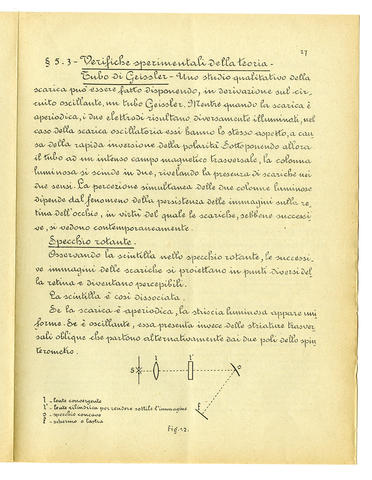 27
§ 5.3 - Verifiche sperimentali della teoria -
Tubo di Geissler - Uno studio qualitativo della
scarica può essere fatto disponendo, in derivazione sul cir-
cuito oscillante, un tubo Geissler. Mentre quando la scarica è
aperiodica, i due elettrodi risultano diversamente illuminati, nel
caso della scarica oscillatoria essi hanno lo stesso aspetto, a cau
sa della rapida inversione della polarità. Sottoponendo allora
il tubo ad un intenso campo magnetico trasversale, la colonna
luminosa si scinde in due, rivelando la presenza di scariche nei
due sensi. La percezione simultanea delle due colonne luminose
dipende dal fenomeno della persistenza delle immagini sulla re-
tina dell'occhio, in virtù del quale le scariche, sebbene successi
ve, si vedono contemporaneamente.
Specchio rotante.
Osservando la scintilla nello specchio rotante, le successi
ve immagini delle scariche si proiettano in punti diversi del
la retina e diventano percepibili.
La scintilla è così dissociata.
Se la scarica è aperiodica, la striscia luminosa appare uni
forme. Se è oscillante, essa presenta invece delle striature trasver
sali oblique che partono alternativamente dai due poli dello spin
terometro.
S l l' o
f
l - lente convergente
l' - lente cilindrica per rendere sottile l'immagine
o - specchio concavo
f - schermo o lastra
Fig. 12.